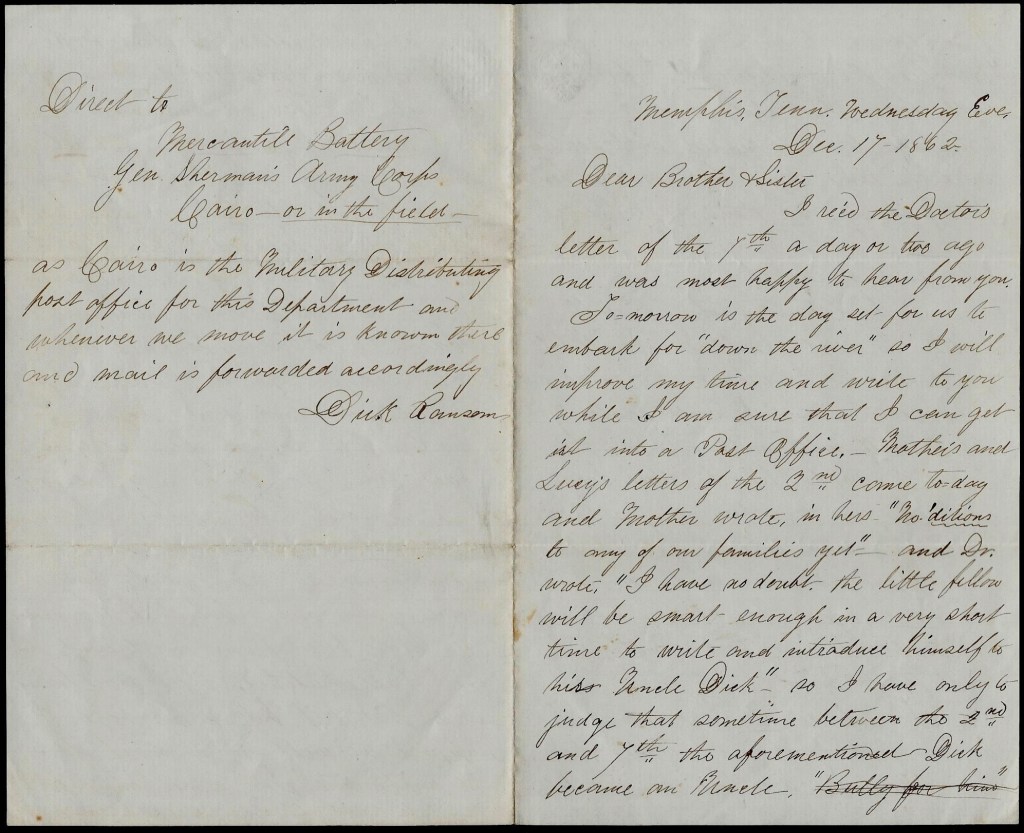 Direct to
Mercantile Battery
Gen. Sherman's Army Corps
Cairo — or in the field —
as Cairo is the Military Distributing
post office for this Department and
whenever we move it is known there
and mail is forwarded accordingly
Dick Ransom
Memphis, Tenn. Wednesday Eve.
Dec. 17 - 1862.
Dear Brother & Sister
I rec'd the Doctor's
letter of the 7th a day or two ago
and was most happy to hear from you.
To=morrow is the day set for us to
embark for "down the river" so I will
improve my time and write to you
while I am sure that I can get
it into a Post Office. — Mother's and
Lucy's letters of the 2nd came to=day
and Mother wrote, in hers - "No 'ditions
to any of our families yet" — and Dr.
wrote, "I have no doubt the little fellow
will be smart enough in a very short
time to write and introduce himself to
his Uncle Dick" — so I have only to
judge that sometime between the 2nd
and 7th the aforementioned Dick
became an Uncle. "Bully for him"